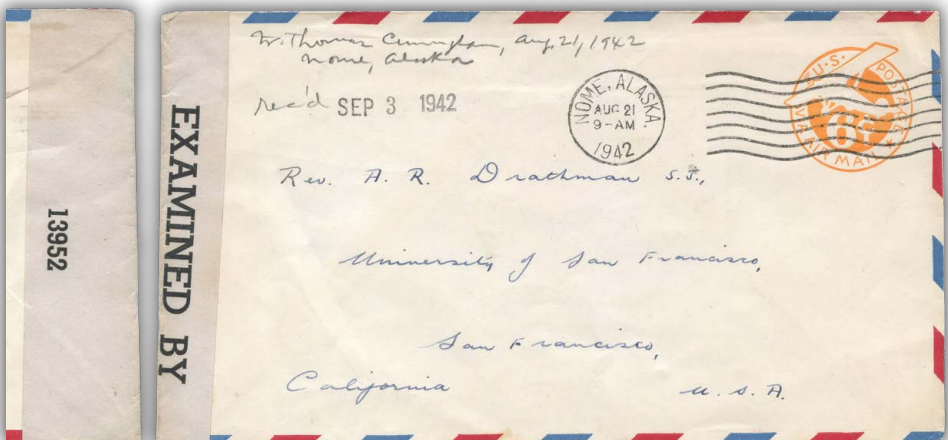 13952
EXAMINED BY
W. Thomas Cunningham, Aug. 21, 1942
Nome, Alaska
rec'd SEP 3 1942
NOME, ALASKA.
AUG 21
9-AM
1942
U.S. POSTAGE
VIA AIR MAIL
6¢
Rev. A. R. Drathman S.J.,
University of San Francisco,
San Francisco,
California U.S.A.